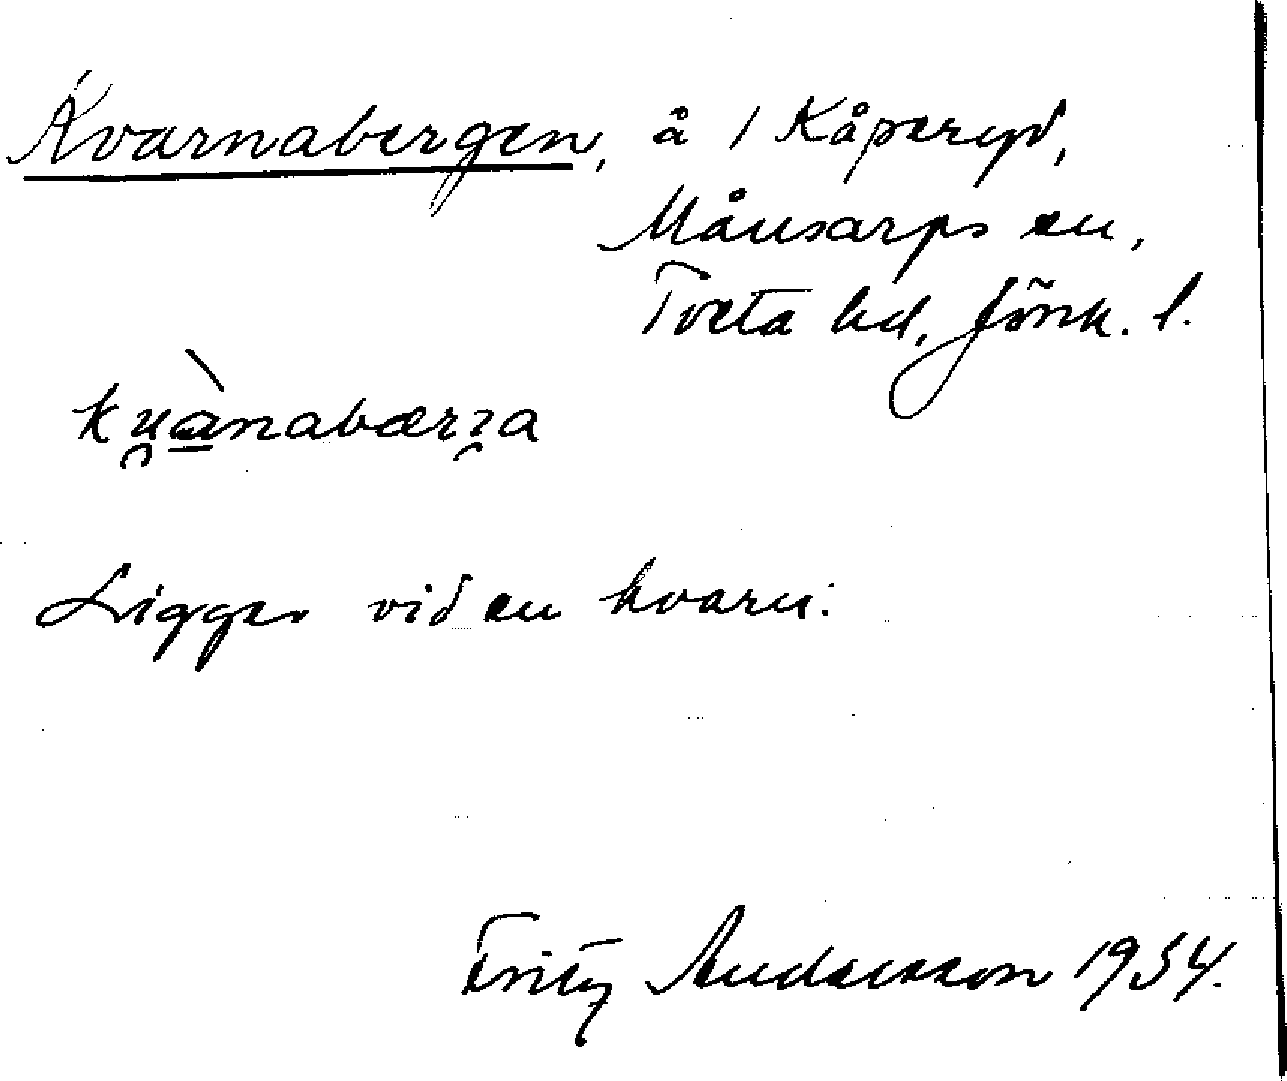 Kvarnabergen, å 1 Kåperyd,
Månsarps sn,
Tveta hd, Jönk. l.
ku̯ànabærı̯a
Ligger vid en kvarn.
Fritz Andersson 1934.